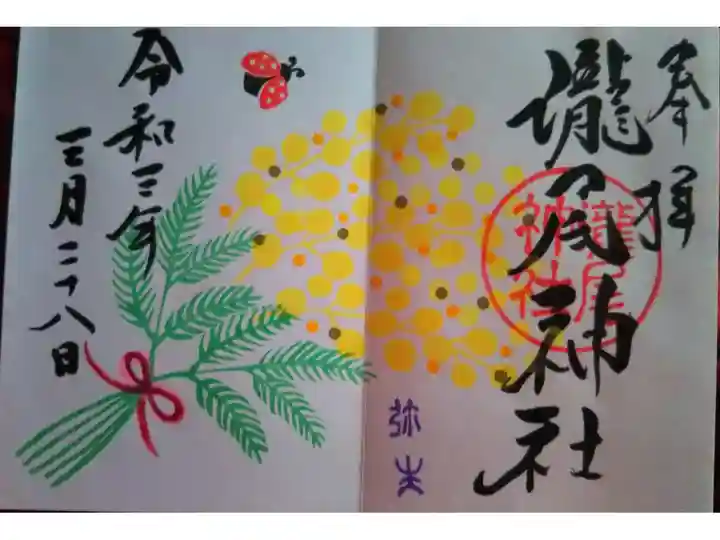 奉拝
瀧尾神社
瀧尾
神社
弥生
令和三年
三月二十八日